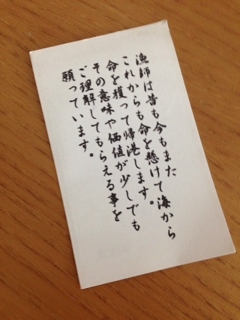 漁師は昔も今もまた
これからも命を懸けて海から
命を獲って帰港します。
その意味や価値が少しでも
ご理解してもらえる事を
願っています。